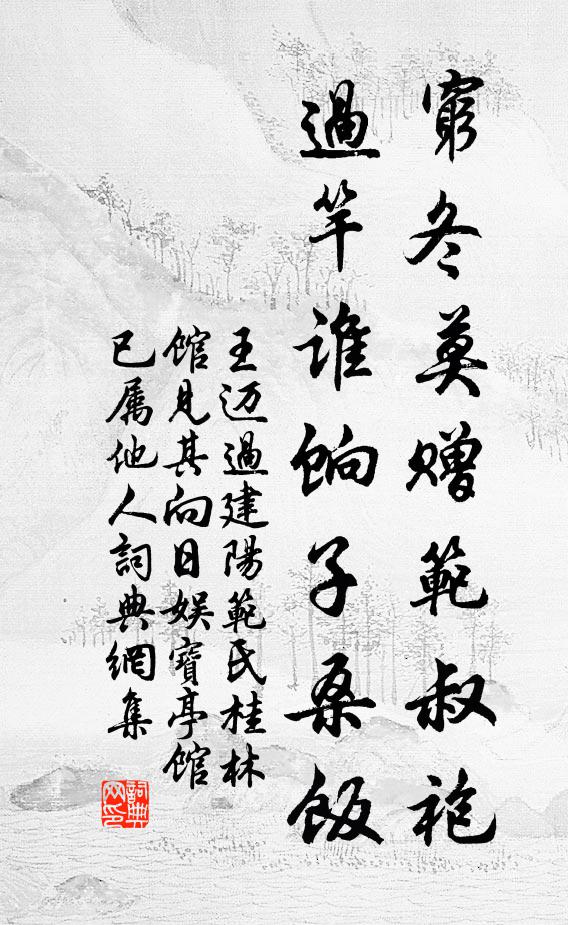 窮冬莫贈範叔袍
過午誰餉子桑飯
王迈過建陽範氏桂林
館見其向日娱寶亭館
已属他人詞典網集
詞典
网印